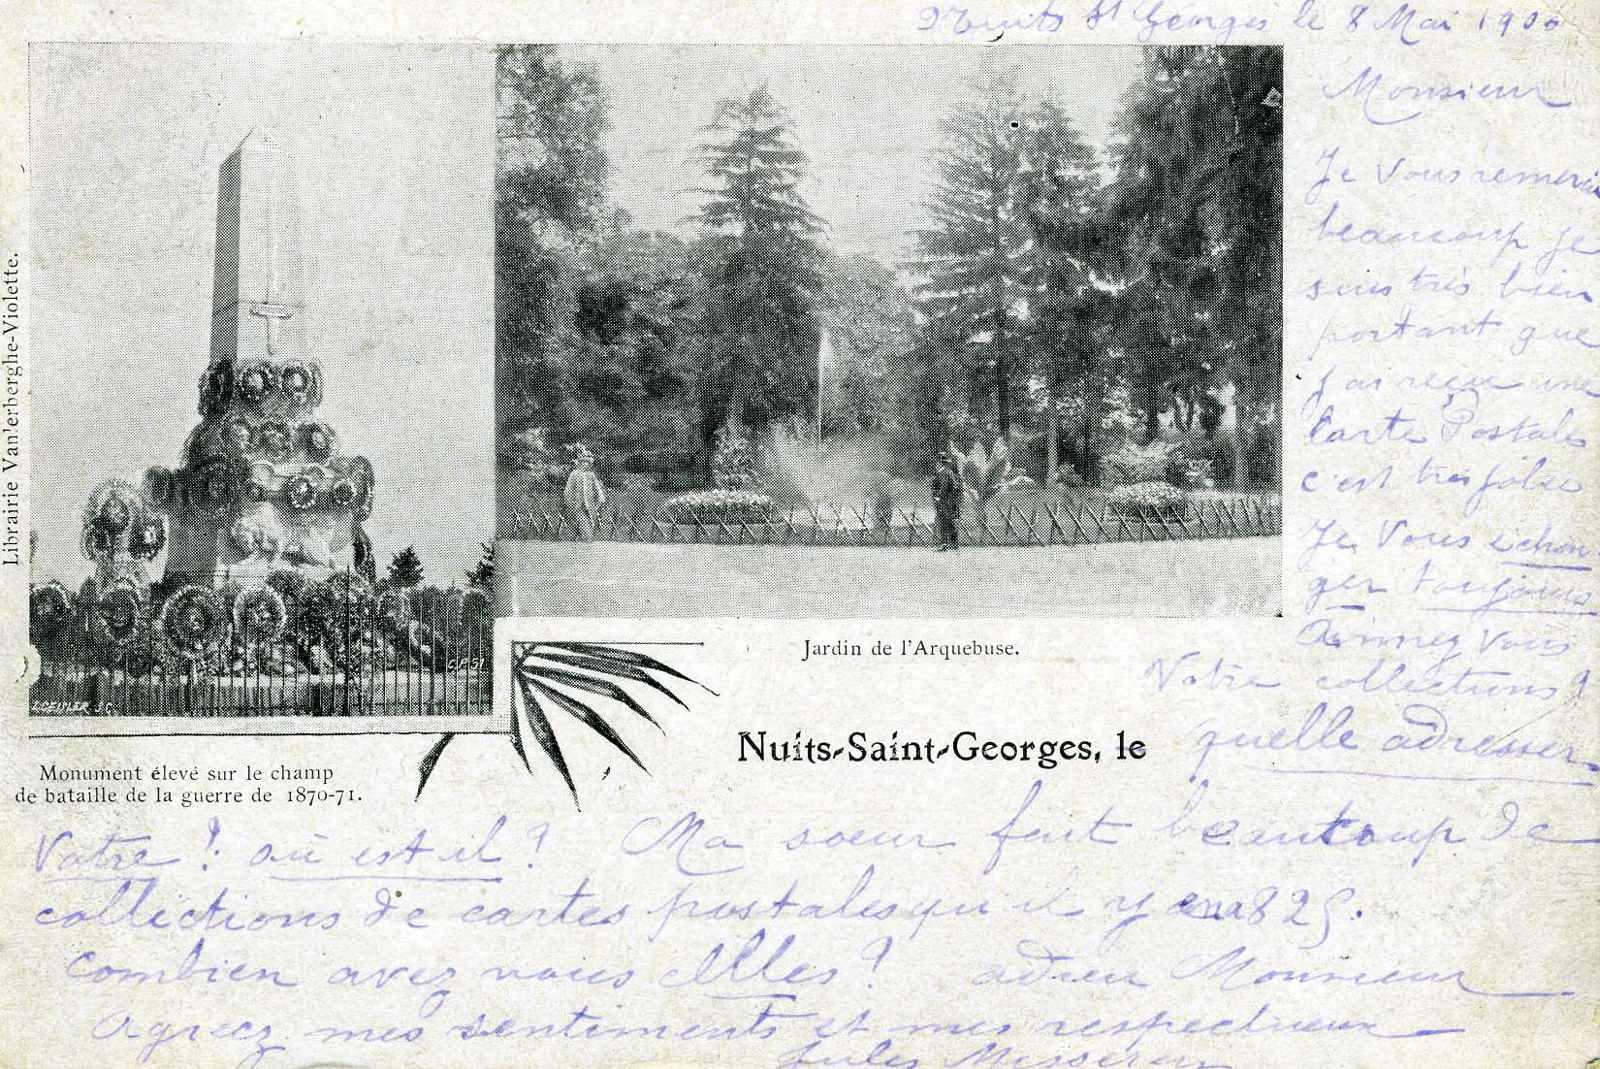 Nuits St Georges le 8 Mai 1900
Monsieur
Je Vous remerci
beaucoup je
suis très bien
portant que
j'ai reçu une
Carte Postale
c'est très jolie
Je Vous echan-
ger toujours
Aimmez Vous
Votre collections?
quelle adresser
Votre! où est il? Ma soeur fait beaucoup de
collections de cartes postales qu il y en a 825.
Combien avez vous elles? adieu Monsieur
Agreez mes sentiments et mes respectueux
Jules
Librairie Van'erberghe-Violette.
E. DEMLER S.C.
C.P.51
Monument élevé sur le champ
de bataille de la guerre de 1870-71.
Jardin de l'Arquebuse.
Nuits-Saint-Georges, le